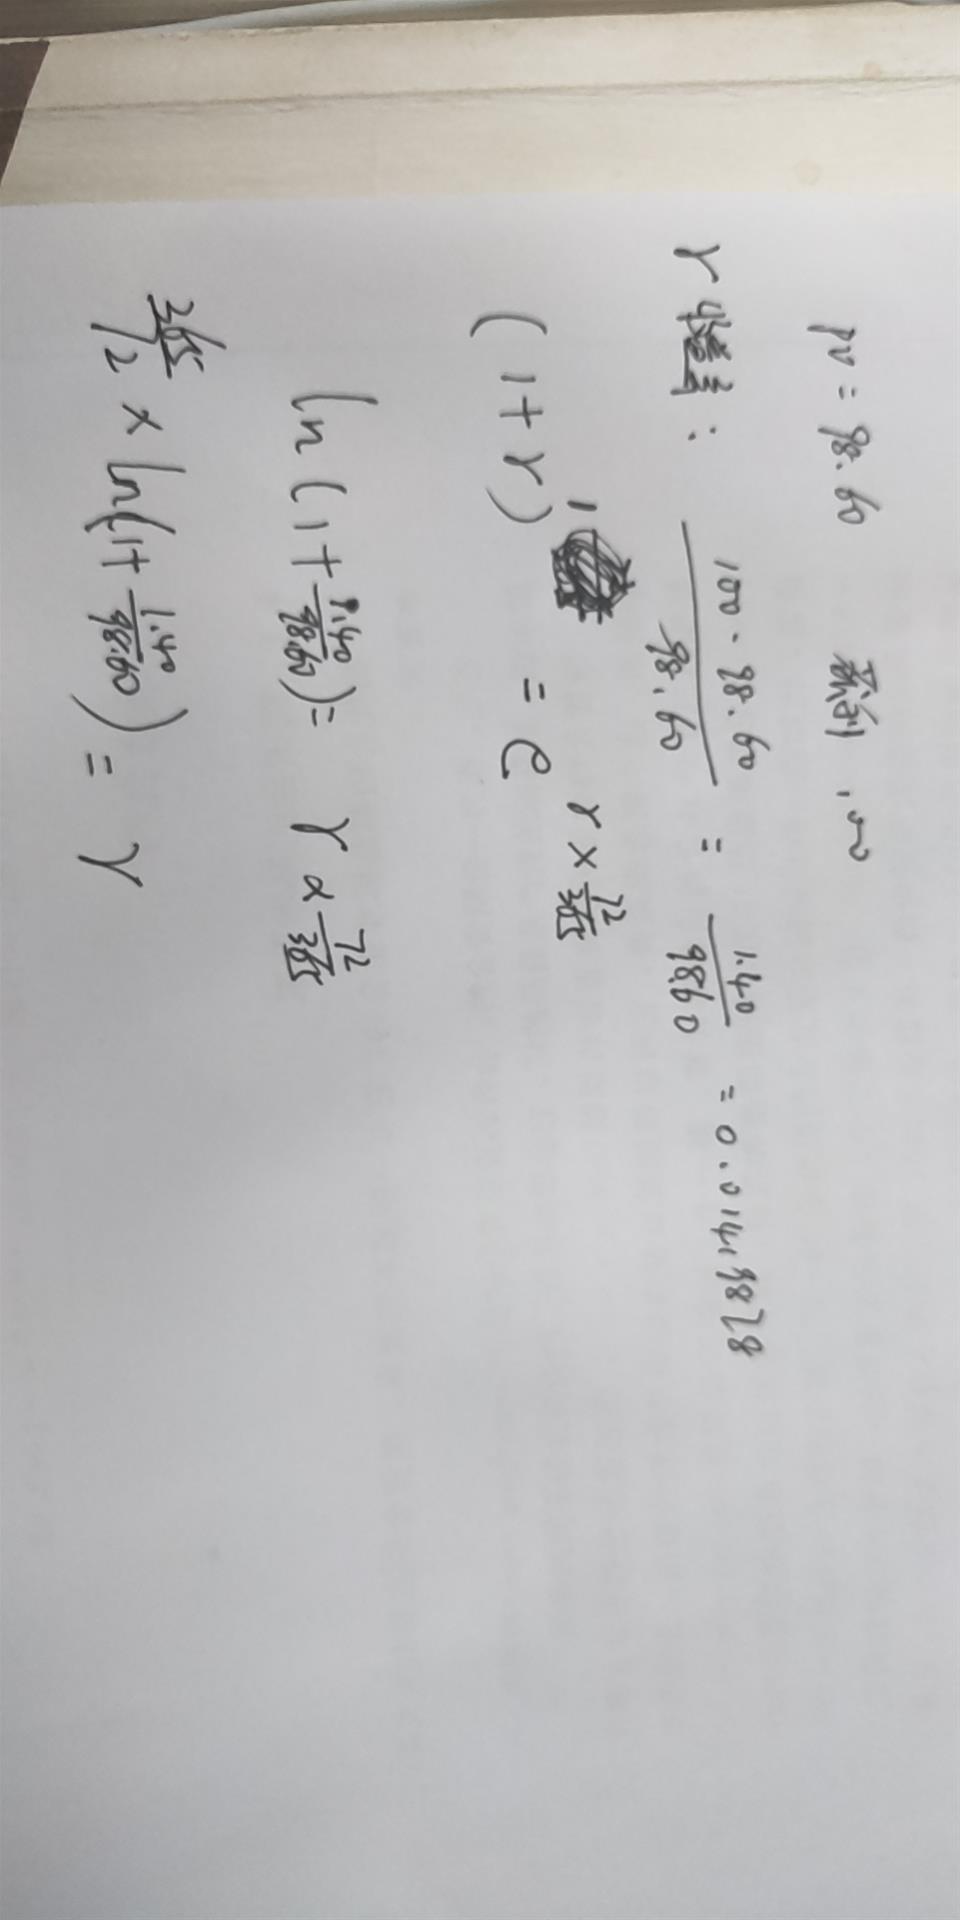 pv = 98.60 获利 1.00
r 收益率 : (100 - 98.60) / 98.60 = 1.40 / 98.60 = 0.01419878
(1+r)^1 = e^(r × 72/365)
ln(1+ 1.40/98.60) = r × 72/365
365/72 × ln(1+ 1.40/98.60) = r